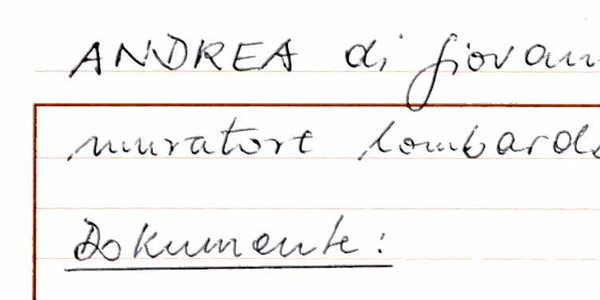 ANDREA di Giovan
muratore lombardo
Dokumente: